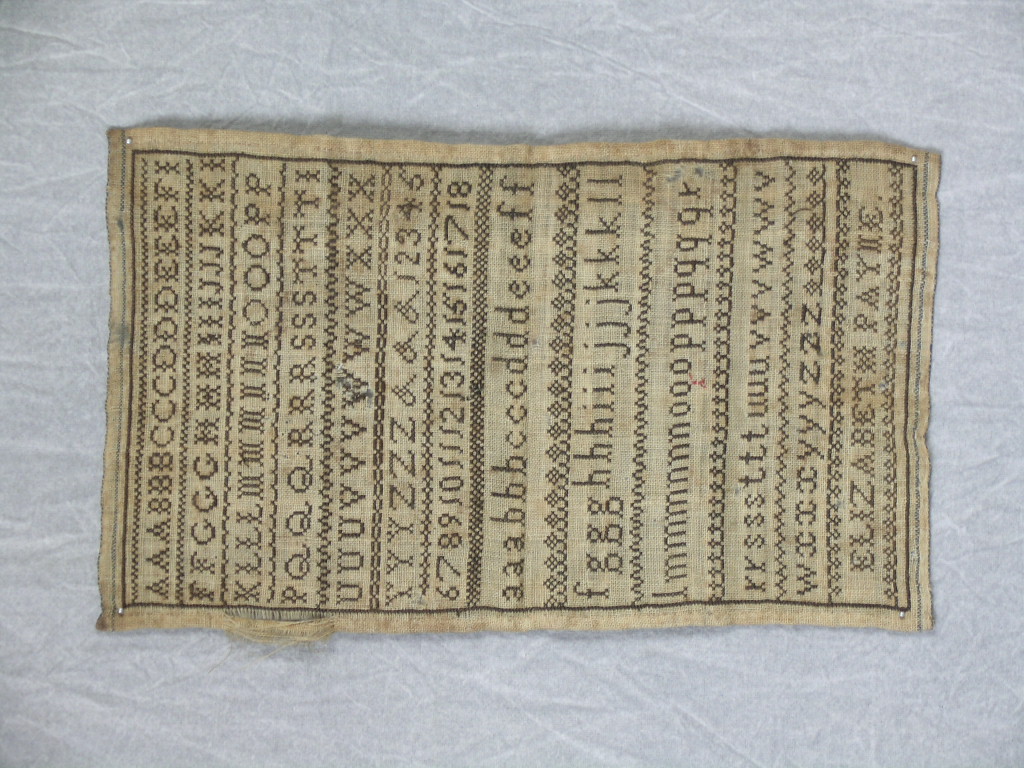 AAABBBCCCDDDEEEF
FFGGGHHHIIIJJJKK
KLLLMMMNNNOOOPP
PQQQRRRSSSTTT
UUUVVVWWWXXX
YYYZZZ&&&12345
6789101112131415161718
aaabbbcccdddeeeff
fggghhhiiijjjkkkll
lmmmnnnooopppqqqr
rrssstttuuuvvvww
wxxxyyyzzz
ELIZABETH PAYNE